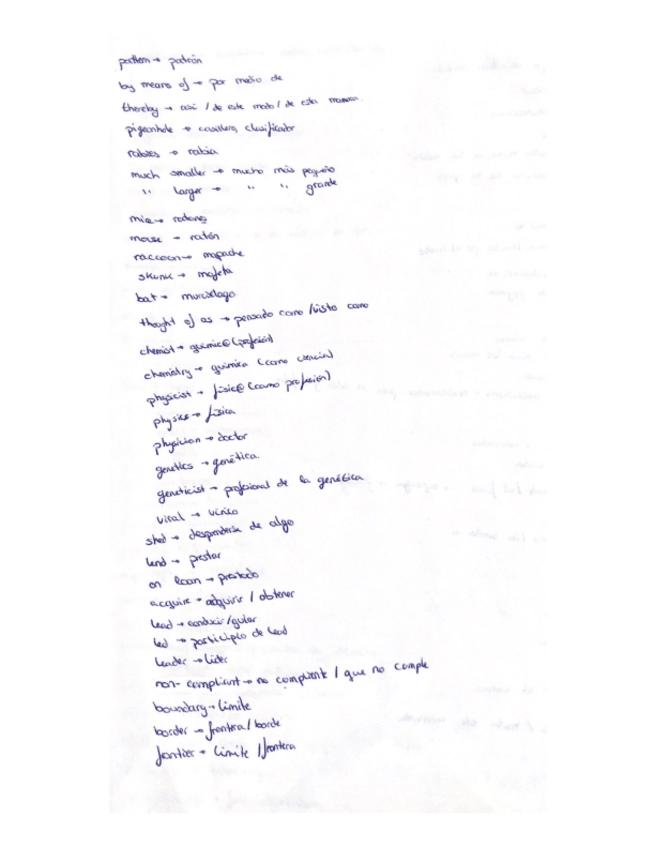 pattern → patrón
by means of → por medio de
thereby → así / de este modo / de esta manera
pigeonhole → casillero, clasificador
rabies → rabia
much smaller → mucho más pequeño
" larger → " " grande
mice → ratones
mouse → ratón
raccoon → mapache
skunk → mofeta
bat → murciélago
thought of as → pensado como / visto como
chemist → químic@ (profesión)
chemistry → química (como ciencia)
physicist → físic@ (como profesión)
physics → física
physician → doctor
genetics → genética.
geneticist → profesional de la genética
viral → vírico
shed → desprenderse de algo
lend → prestar
on loan → prestado
acquire → adquirir / obtener
lead → conducir / guiar
led → participio de lead
leader → líder
non-compliant → no / que no cumple
boundary → límite
border → frontera / borde
frontier → límite / frontera